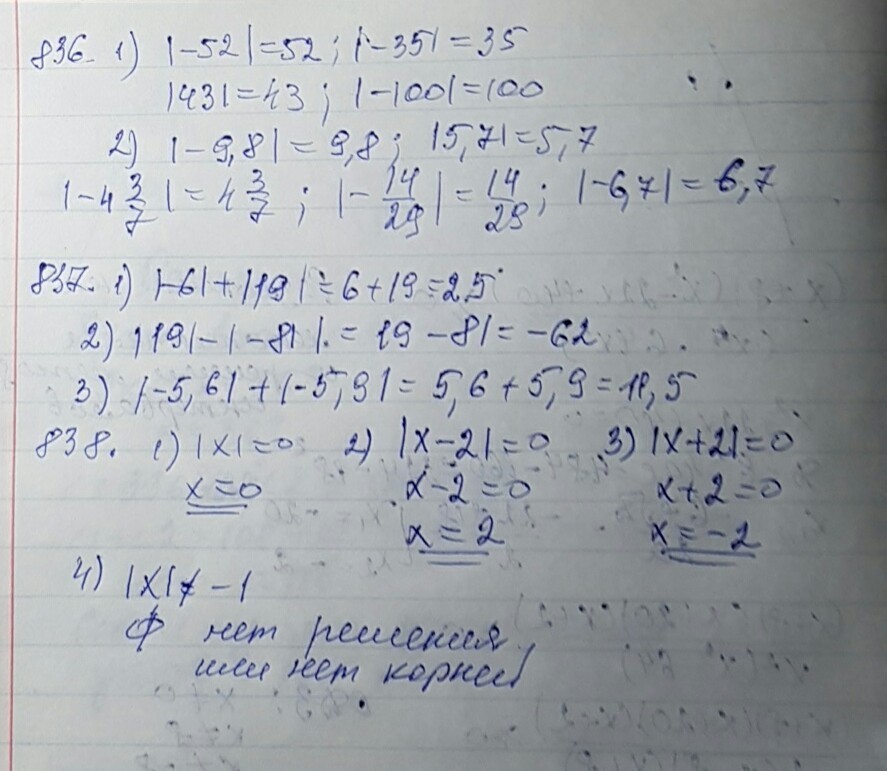 836. 1) |-52|=52; |-35|=35
|43|=43; |-100|=100
2) |-9,8|=9,8; |5,7|=5,7
|-4 3/7|=4 3/7; |-14/29|=14/29; |-6,7|=6,7
837. 1) |-6|+|19|=6+19=25
2) |19|-|-81|=19-81=-62
3) |-5,6|+|-5,9|=5,6+5,9=11,5
838. 1) |x|=0 2) |x-2|=0 3) |x+2|=0
x=0 x-2=0 x+2=0
x=2 x=-2
4) |x|≠-1
∅ нет решения
или нет корней